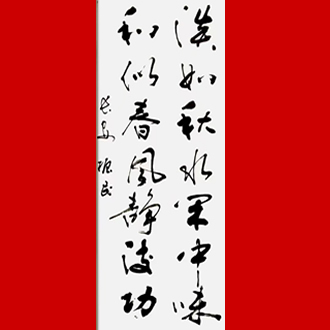 淡如秋水闲中味
和似春风静后功
长安 振民